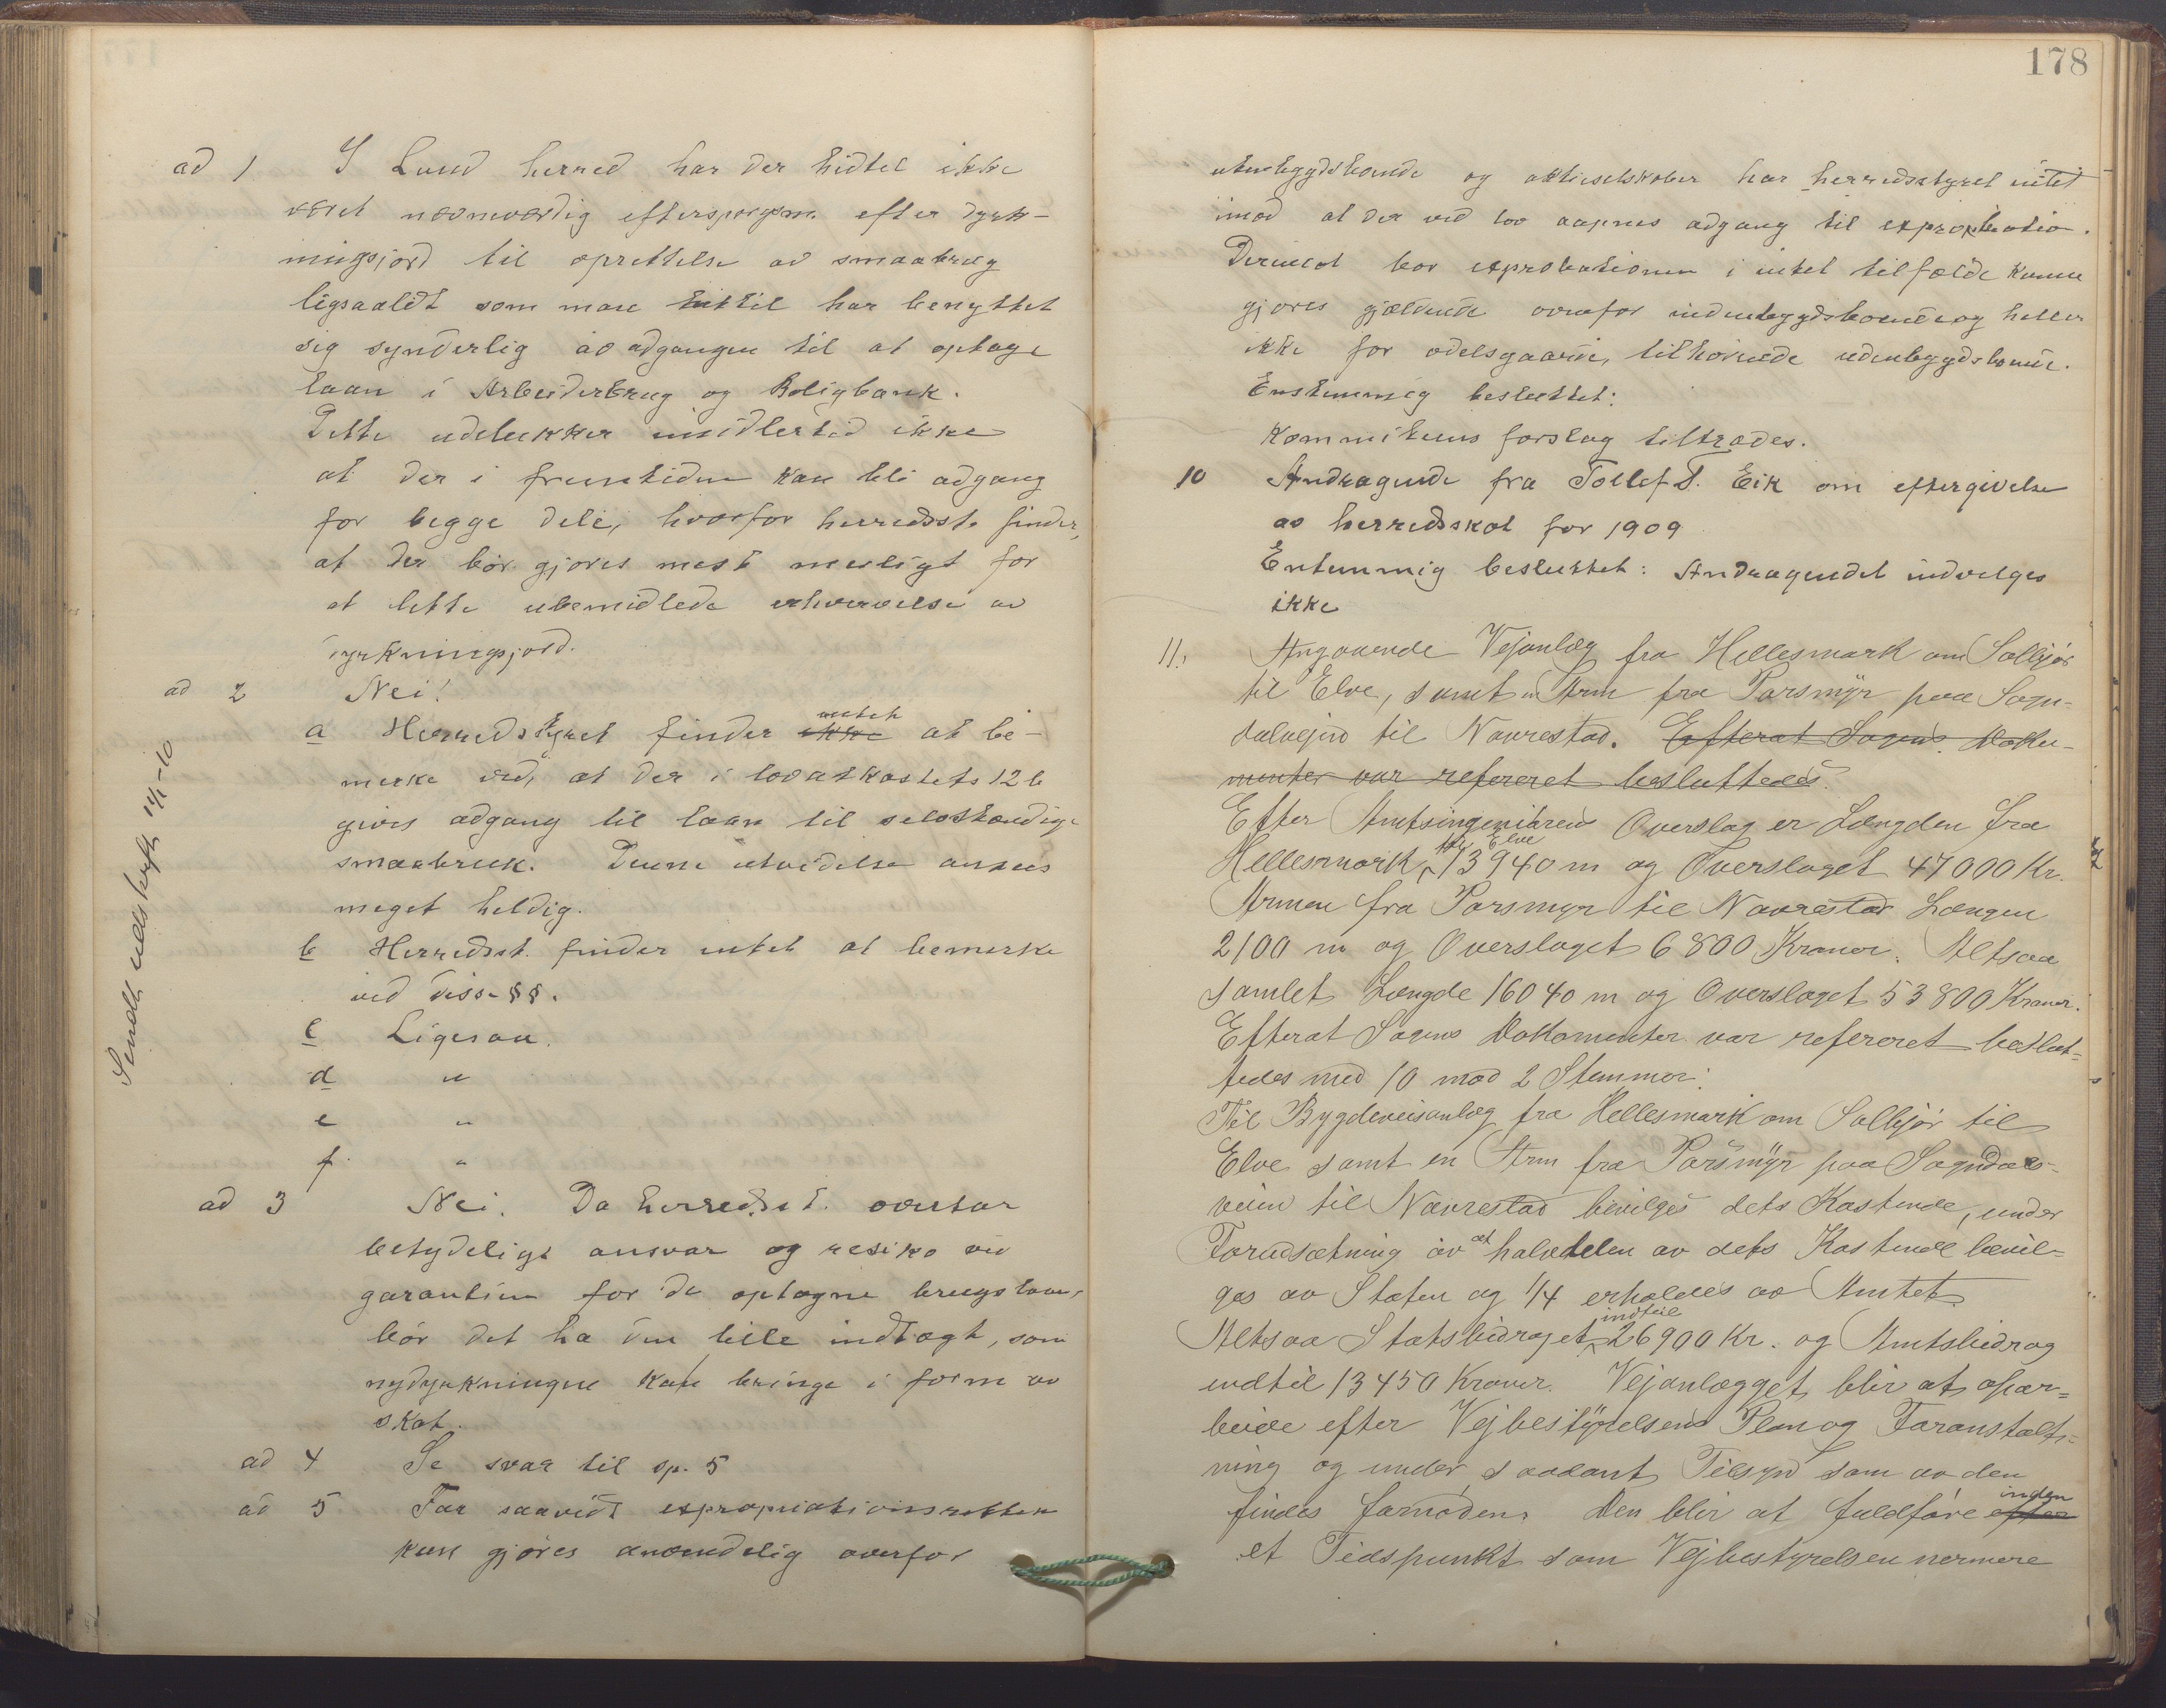 ad 1 I Lund herred har der hidtil ikke
været nævneværdig efterspørgsm. efter dyrk-
ningsjord til oprettelse av smaabrug
ligsaalidt som man hittil har benyttet
sig synderlig av adgangen til at optage
laan i Arbeiderbrug og Boligbank.
Dette udelukker imidlertid ikke
at der i fremtiden kan bli adgang
for begge dele, hvorfor herredsst. finder,
at der bör gjöres mest muligt for
at lette ubemidlede erhvervelse av
dyrkningsjord.
ad 2 Nei!
a Herredstyret finder ikke intet at be-
merke ved, at der i lovutkastets 12 b
givis adgang til laan til selvstændige
smaabruk. Denne utvidelse ansees
meget heldig.
b Herredsst. finder intet at bemerke
ved disse §§.
c Ligesaa.
d "
e "
f "
Sendt uds kryft 14/1-10
ad 3 Nei. Da herredsst. overtar
betydelige ansvar og resiko ved
garantien for de optagne brugslaan,
bör det ha den lille indtægt, som
nydyrkningene kan bringe i form av
skat.
ad 4 Se svar til sp. 5
ad 5 For saavidt expropriationsretten
kun gjöres anvendelig overfor
178
utenbygdsboende og aktieselskaber har herredsstyret intet
imod at der ved lov aapnes adgang til expropriation.
Derimot bör exprobationen i intet tilfælde kunne
gjöres gjældende ovenfor indenbygdsboende og heller
ikke for odelsgaarde, tilhörende udenbygdsboende.
Enstemmig besluttet:
Kommiteens forslag tiltrædes.
10 Andragende fra Tollef T. Eik om eftergivelse
av herredsskat for 1909
Entemmig besluttet: Andragendet indvelges
ikke
11. Angaaende Vejanlæg fra Hellesmark om Solbjör
til Elve, samt en Arm fra Porsmyr paa Sogn-
dalvejen til Navrestad. Efterat Sagens Doku-
menter var refereret besluttedes
Efter Amtsingeniörens Overslag er Længden fra
Hellesmark til Elve 13940 m og Overslaget 47000 Kr.
Armen fra Porsmyr til Navrestad Længen
2100 m og Overslaget 6800 Kroner. Altsaa
samlet Længde 16040 m og Overslaget 53800 Kroner.
Efterat Sagens Dokomenter var refereret beslut=
tedes med 10 mod 2 Stemmer:
Til Bygdeveisanlæg fra Hellesmark om Solbjör til
Elve samt en Arm fra Porsmyr paa Sogndals-
veien til Navrestad bevilges dets Kostende, under
Forudsætning av at halvdelen av dets Kostende bevil=
ges av Staten og 1/4 erholdes av Amtet.
Altsaa Statsbidraget indtil 26900 Kr. og Amtsbidrag
indtil 13450 Kroner. Vejanlægget blir at opar=
beide efter Vejbestyrelsens Plan og Foranstalt=
ning og under saadant Tilsyn som av den
findes fornöden. Den blir at fuldföre efter inden
et Tidspunkt som Vejbestyrelsen nermere